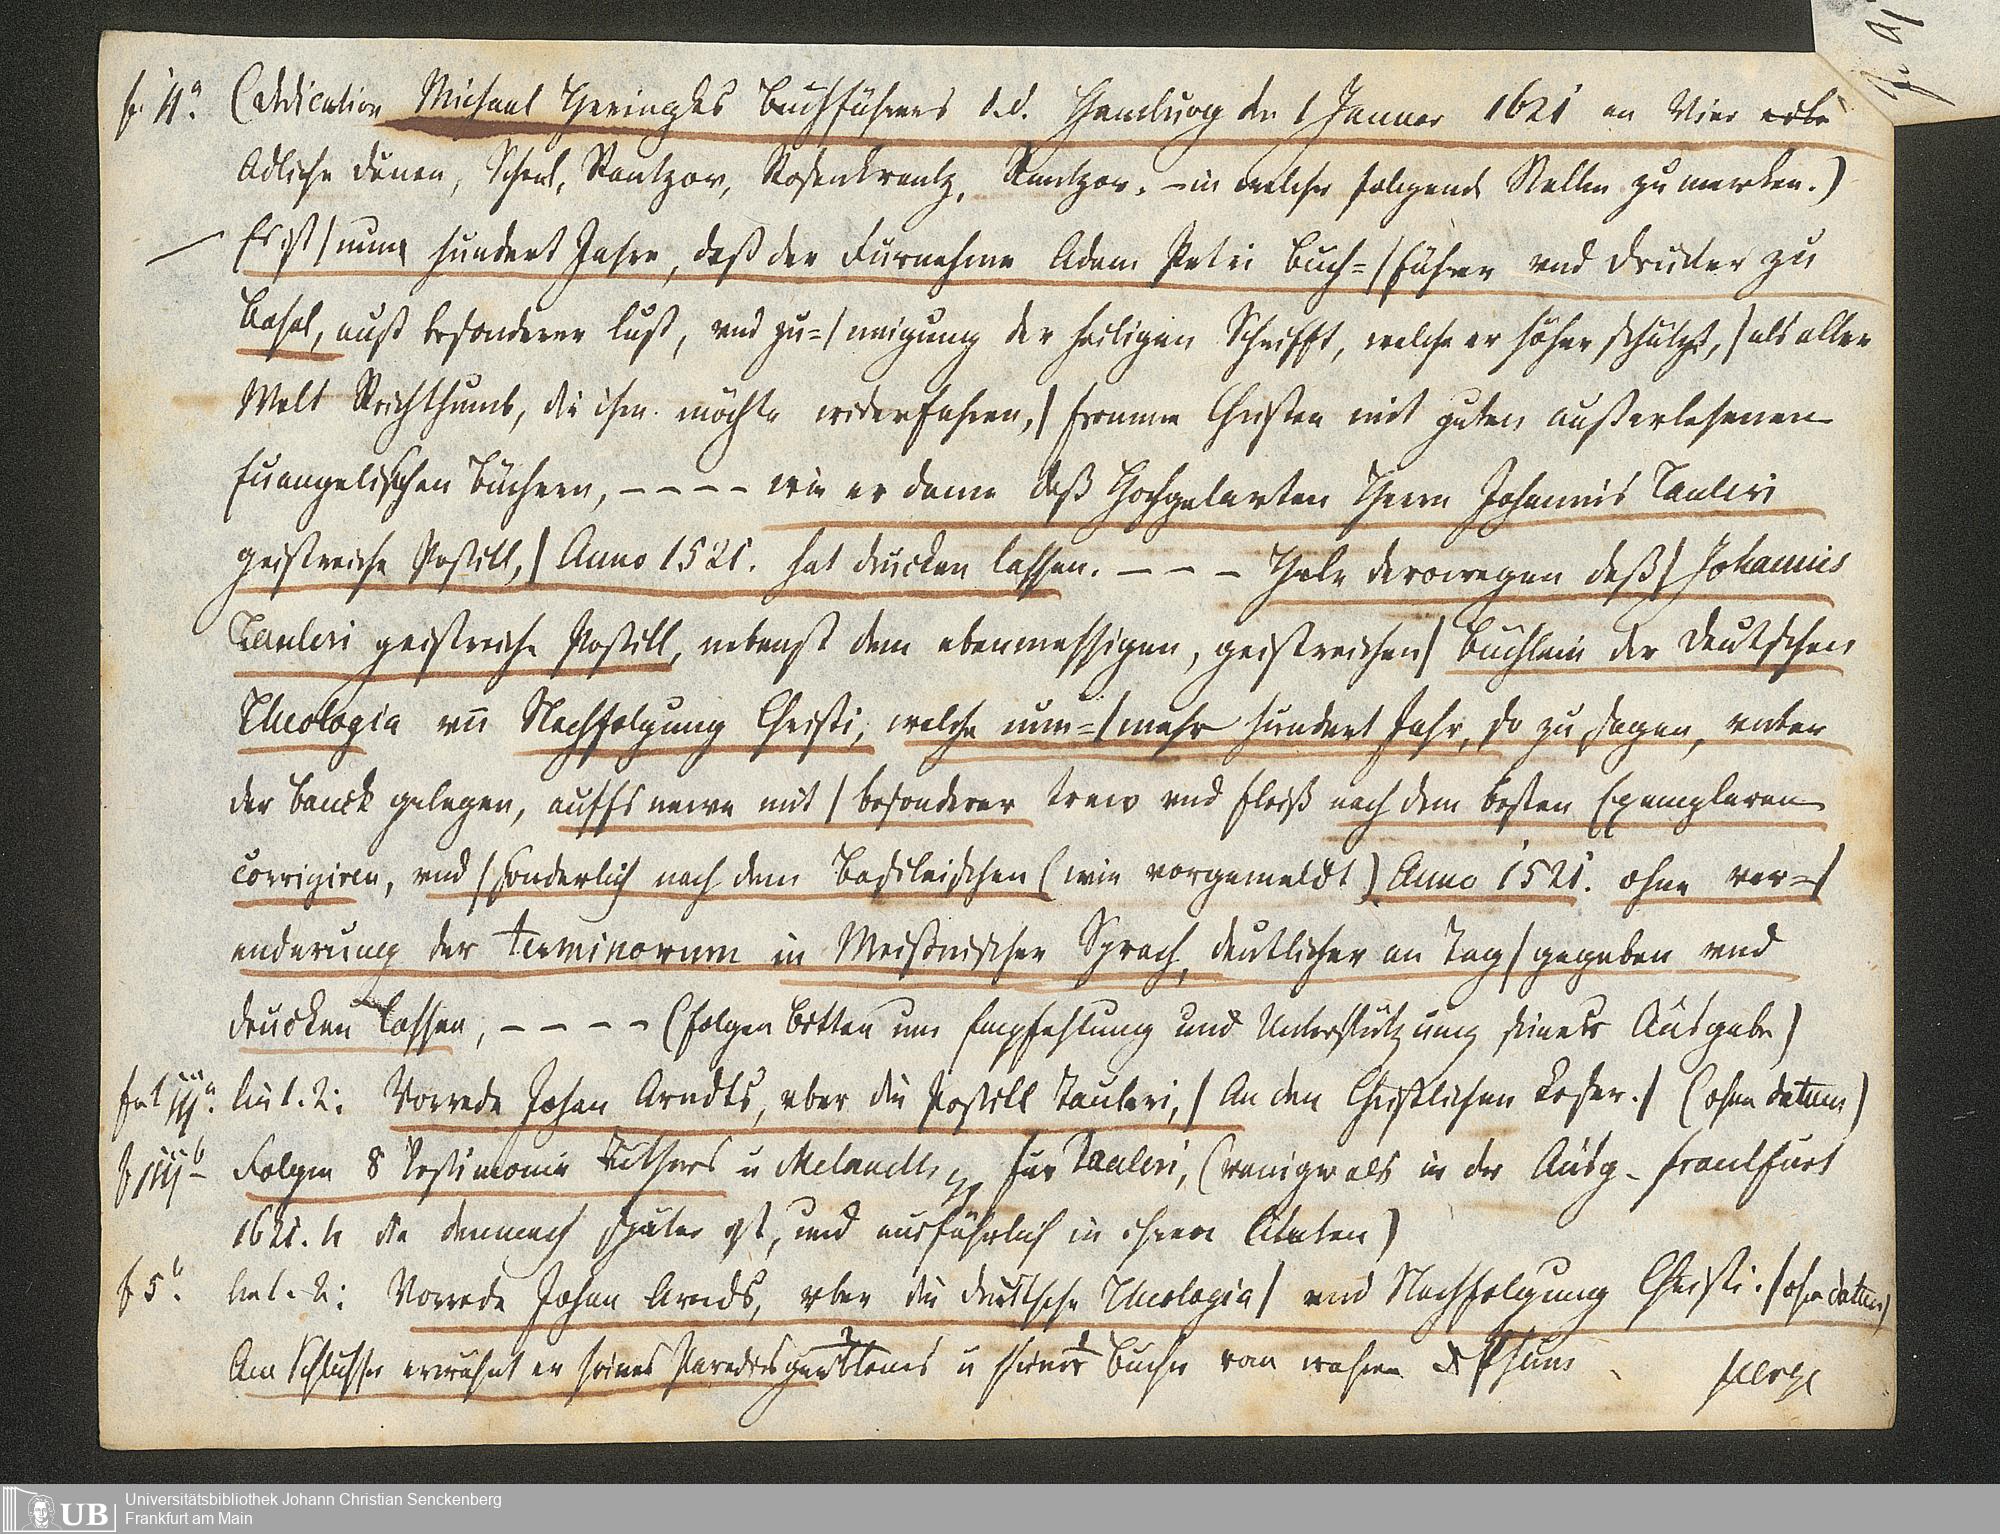 f. 4a (Dedication Michael Heringhs Buchführers d.d. Hamburg den 1 Januar 1621 an Vier
Adliche Dänen, Schenk, Rantzow, Rosenkrantz, Rantzow. – in welcher folgende Stellen zu merken.)
Es ist / nun hundert Jahre, daß der Furnehme Adam Petri Buch=/führer vnd Drucker zu
Basel, auß besonderer lust, vnd zu=/neigung der heiligen Schrifft, welche er höher schätzet, / als aller
Welt Reichthumb, die ihm möchte widerfahren, / fromme Christen mit guten außerlesenen
Euangelischen Büchern, – – – – wie er dann deß Hochgelarten Herrn Johannis Tauleri
geistreiche Postill, / Anno 1521. hat drucken lassen. – – – Habe derowegen deß / Johannis
Tauleri geistreiche Postill, nebenst dem ebenmessigen, geistreichen / Büchlein der Deutschen
Theologia vn̄ Nachfolgung Christi, welche nun=/mehr hundert Jahr, so zu sagen, vnter
der Banck gelegen, auffs newe mit / besonderer trew vnd fleiß nach dem besten Exemplaren
corrigiren, vnd / sonderlich nach dem Basileischen (wie vorgemeldt) Anno 1521. ohne ver=/
enderung der terminorum in Meißnischer Sprach, deutlicher an Tag / gegeben vnd
drucken lassen, – – – – (folgen Bitten um Empfehlung und Unterstützung seiner Ausgabe)
lin 1. 2: Vorrede Johan Arndts, vber die Postill Tauleri, / An den Christlichen Leser. / (ohne datum)
Folgen 8 Testimonia Luthers u Melanth für Tauleri, (weniger als in der Ausg. Frankfurt
1621. 4 die demnach später ist, und ausführlich in ihren Citaten)
f 5b. lin 1. 2: Vorrede Johan Arnds, vber die deutsche Theologia / vnd Nachfolgung Christi. / (ohne datum)
Am Schlusse erwähnt er seines Paradisgärtleins u seiner Bücher vom wahren